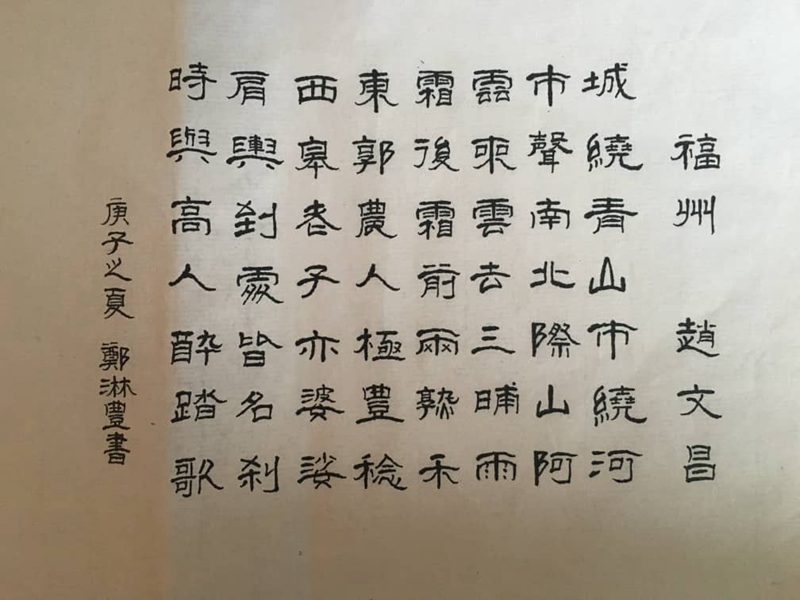 福州 趙文昌
城繞青山市繞河
市聲南北際山阿
雲來雲去三晡雨
霜後霜前兩熟禾
東郭農人極豐稔
西皋老子亦婆娑
肩輿到處皆名刹
時與高人醉踏歌
庚子之夏 鄭淋豐書